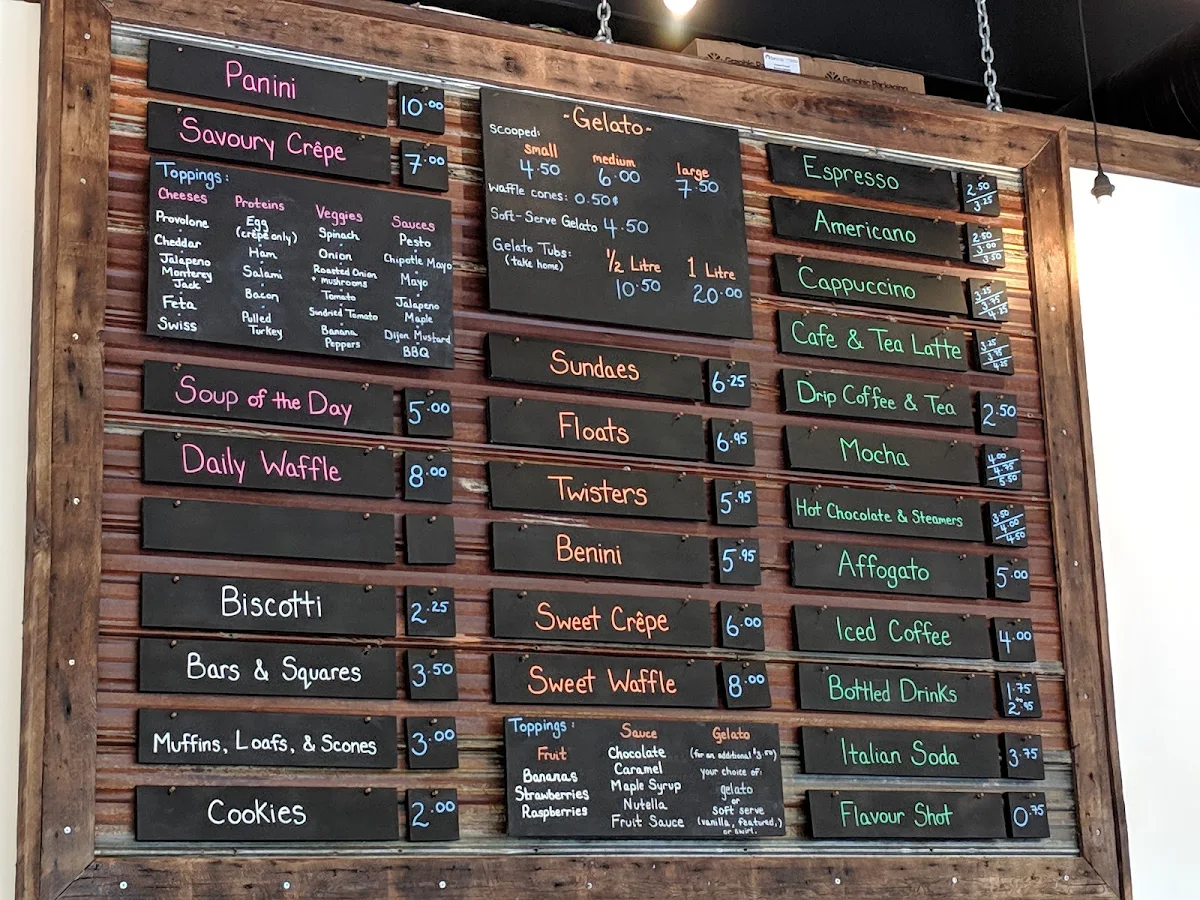 Graphic Packaging
Panini
10.00
Savoury Crêpe
7.00
Toppings:
Cheeses
Provolone
Cheddar
Jalapeno
Monterey
Jack
Feta
Swiss
Proteins
Egg
(crêpe only)
Ham
Salami
Bacon
Pulled
Turkey
Veggies
Spinach
Onion
Roasted Onion
+ mushrooms
Tomato
Sundried Tomato
Banana
Peppers
Sauces
Pesto
Chipotle Mayo
Mayo
Jalapeno
Maple
Dijon Mustard
BBQ
Soup of the Day
5.00
Daily Waffle
8.00
Biscotti
2.25
Bars & Squares
3.50
Muffins, Loafs, & Scones
3.00
Cookies
2.00
-Gelato-
Scooped:
small medium large
4.50 6.00 7.50
Waffle cones: 0.50¢
Soft-Serve Gelato 4.50
Gelato Tubs:
(take home)
1/2 Litre 1 Litre
10.50 20.00
Sundaes
6.25
Floats
6.95
Twisters
5.95
Benini
5.95
Sweet Crêpe
6.00
Sweet Waffle
8.00
Toppings:
Fruit
Bananas
Strawberries
Raspberries
Sauce
Chocolate
Caramel
Maple Syrup
Nutella
Fruit Sauce
Gelato
(for an additional $3.50)
your choice of:
gelato
or
soft serve
(vanilla, featured,)
or swirl.
Espresso
2.50
3.25
Americano
2.50
3.00
3.50
Cappuccino
3.25
3.75
4.25
Cafe & Tea Latte
3.25
3.75
4.25
Drip Coffee & Tea
2.50
Mocha
4.00
4.75
5.50
Hot Chocolate & Steamers
3.50
4.00
4.50
Affogato
5.00
Iced Coffee
4.00
Bottled Drinks
1.75
to
2.95
Italian Soda
3.75
Flavour Shot
0.75